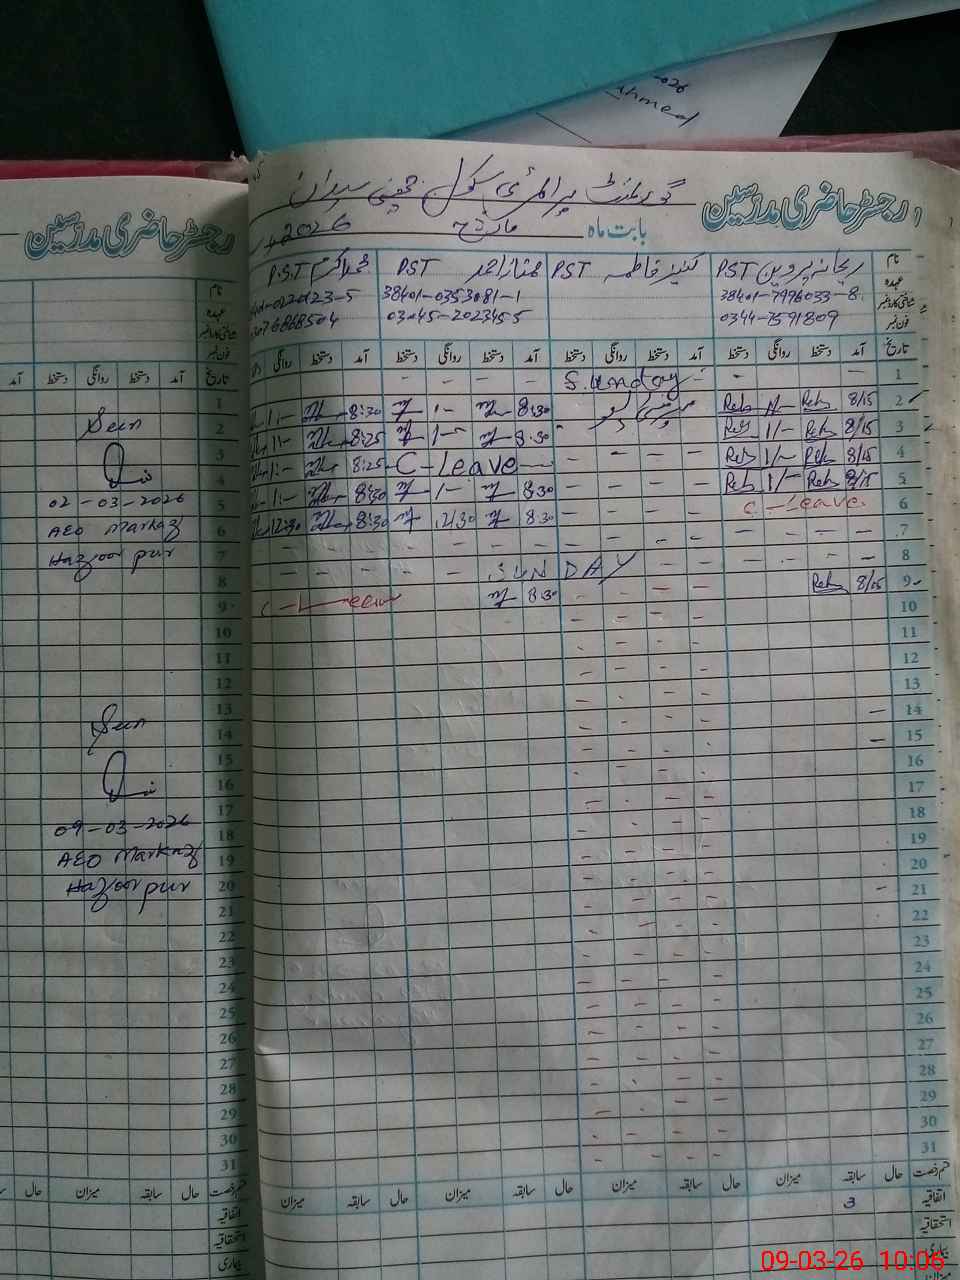 -026
Ahmed
رجسٹر حاضری مدرسین
گورنمنٹ پرائمری سکول
بابت ماہ مارچ 2026
نام ریحانہ پروین PST کنیز فاطمہ PST ممتاز احمد PST محمد اکرم P.S.T
عہدہ
شناختی کارڈ نمبر 38401-7996033-8 38401-0353081-1
فون نمبر 0344-7591809 03045-2023455
تاریخ آمد دستخط روانگی دستخط آمد دستخط روانگی دستخط آمد دستخط روانگی دستخط آمد دستخط روانگی
1 Sunday
2 8/15 1/- 8:30 1:- 8:30 1:-
3 8/15 1/- 8:30 1:- 8:25 1:-
4 8/15 1/- C-Leave 8:25 1:-
5 8/15 1/- 8:30 1/- 8:30 1:-
6 C-Leave 8:30 12:30 8:30 12:30
7
8 SUNDAY
9 8/15 8:30 C-Leave
10
11
12
13
14
15
16
17
18
19
20
21
22
23
24
25
26
27
28
29
30
31
قسم رخصت حال سابقہ میزان حال سابقہ میزان حال سابقہ میزان
اتفاقیہ 3
استحقاقیہ
بیماری
میزان
رجسٹر حاضری مدرسین
نام
عہدہ
شناختی کارڈ نمبر
فون نمبر
تاریخ آمد دستخط روانگی دستخط آمد
1
2 Seen
3
4
5 02-03-2026
6 AEO Markaz
7 Hazoor pur
8
9
10
11
12
13
14 Seen
15
16
17
18 09-03-2026
19 AEO Markaz
20 Hazoor pur
21
22
23
24
25
26
27
28
29
30
31
قسم رخصت حال سابقہ میزان حال
اتفاقیہ
استحقاقیہ
بیماری
09-03-26 10:06